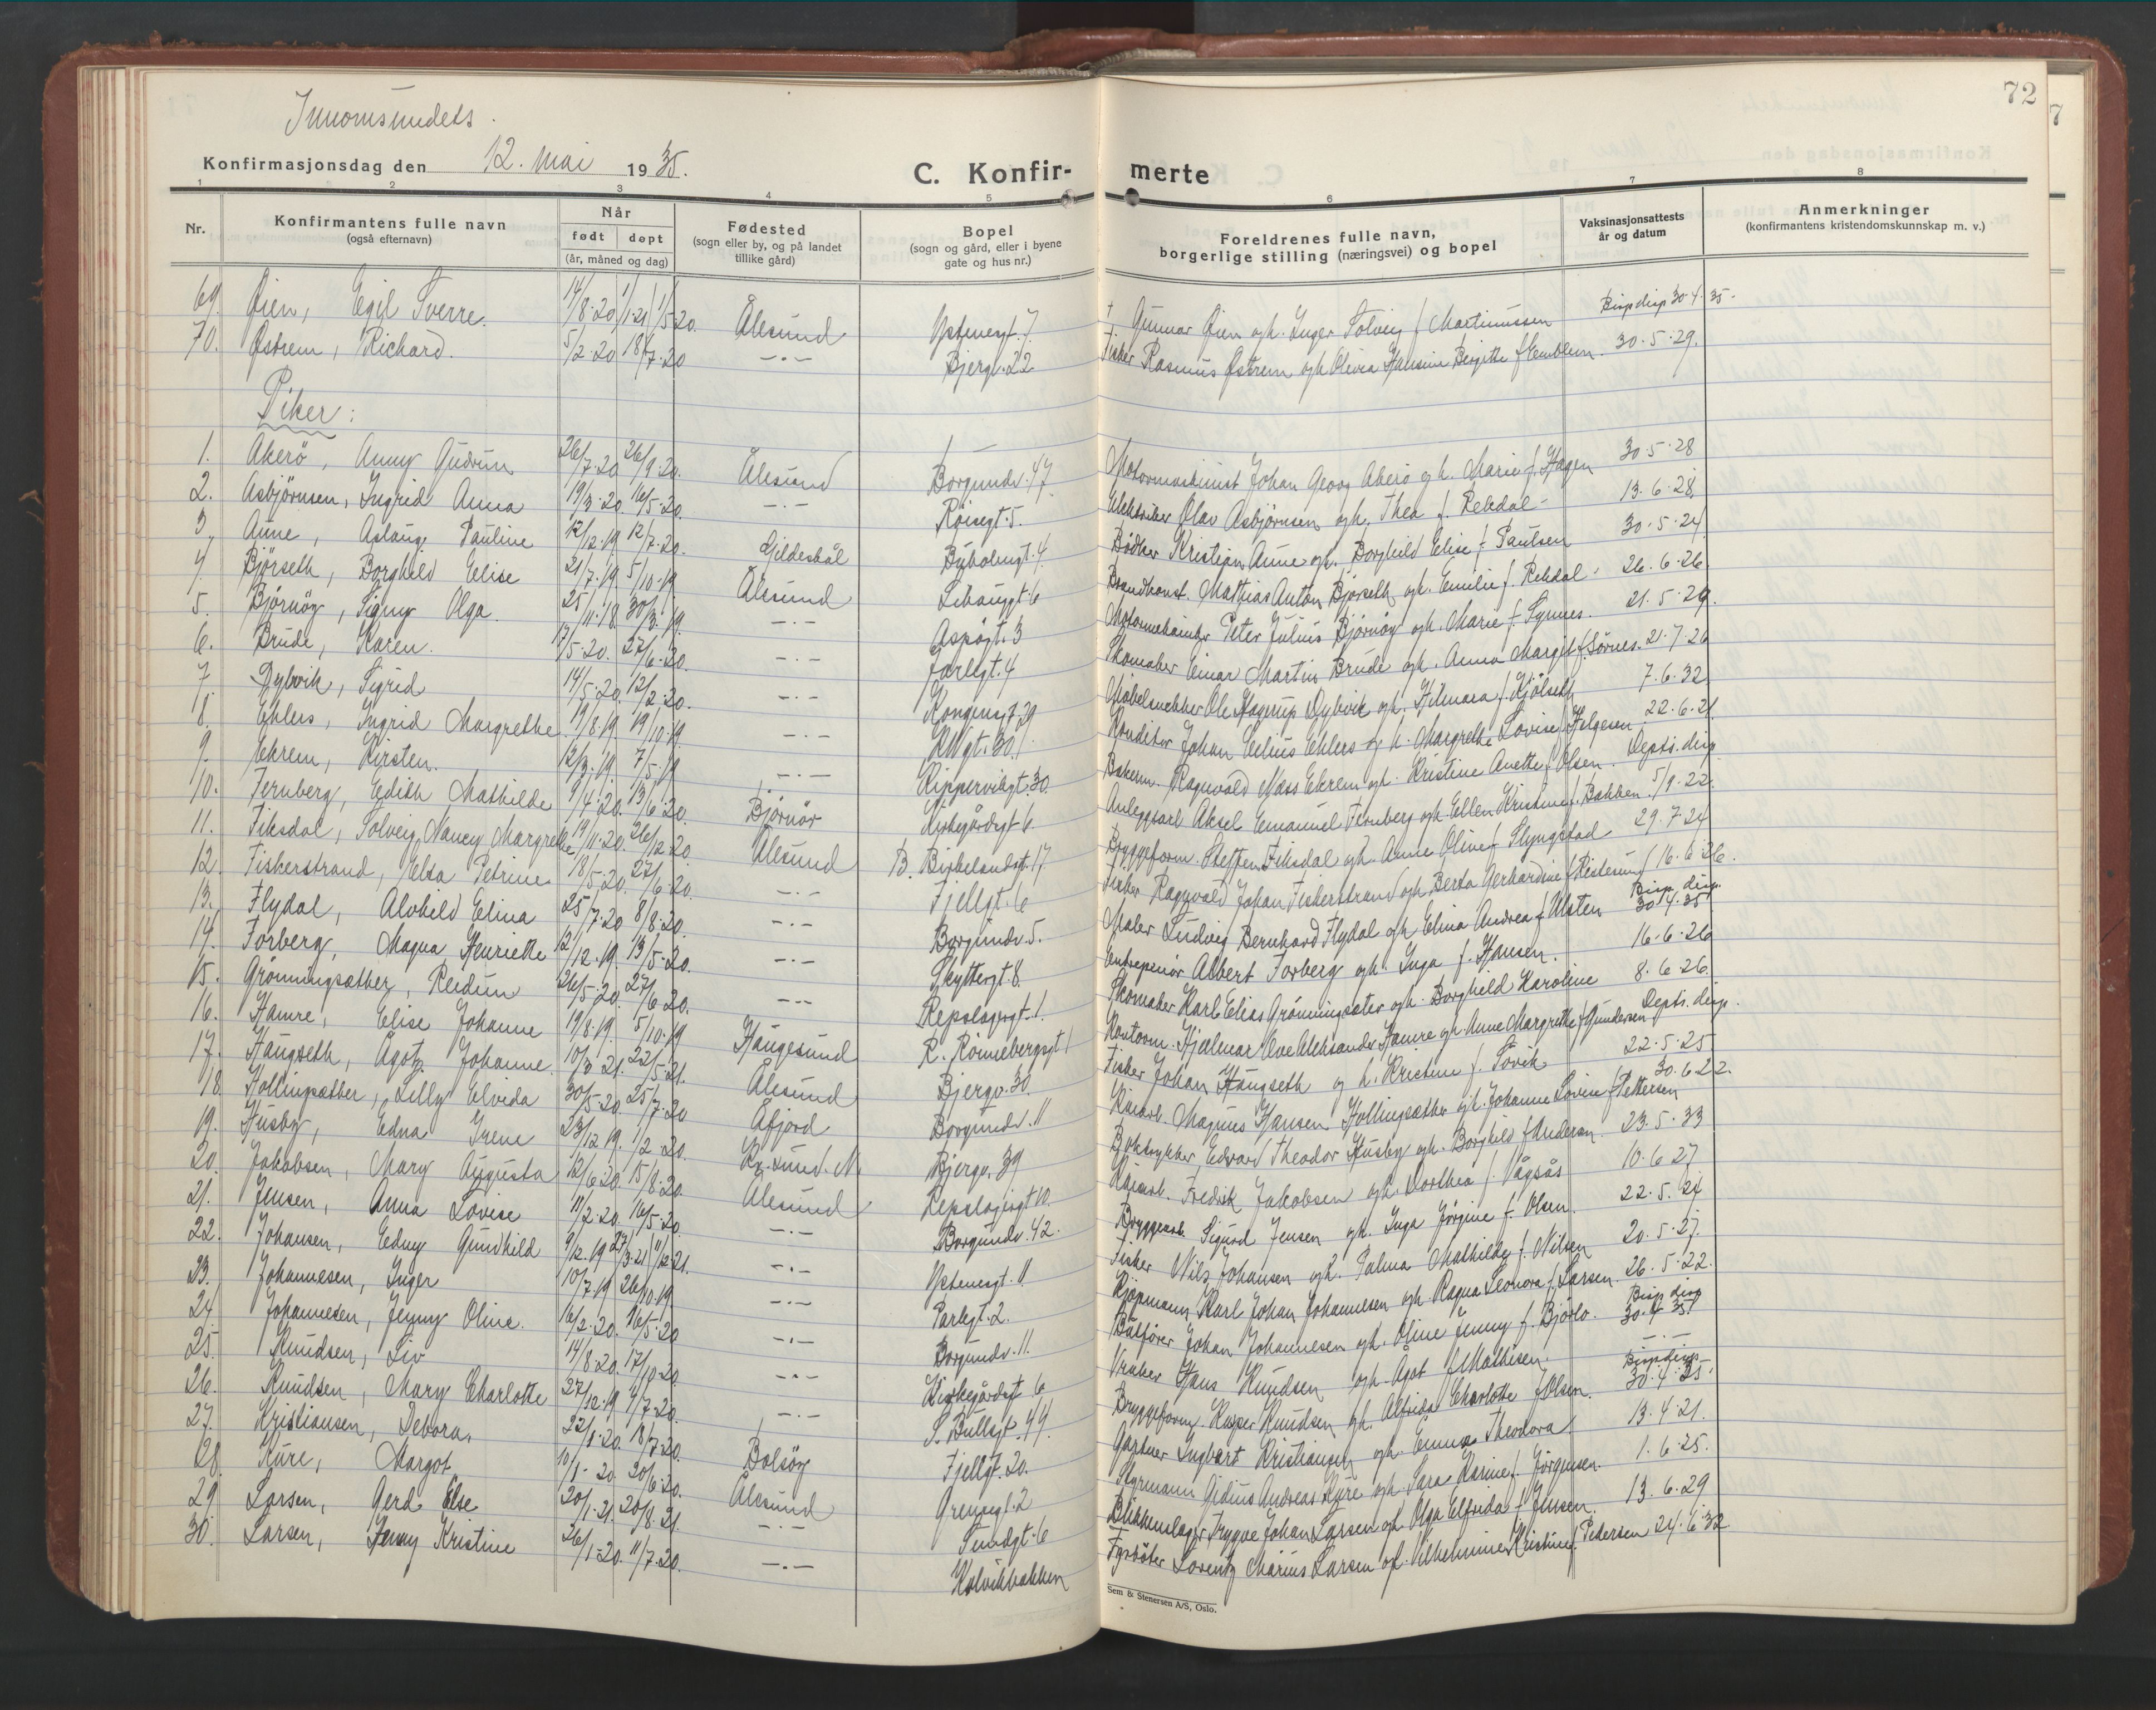 72
Innomsundets.
Konfirmasjonsdag den 12. mai 1935.
C. Konfirmerte
1 2 3 4 5 6 7 8
Nr.
Konfirmantens fulle navn
(også efternavn)
Når
født døpt
(år, måned og dag)
Fødested
(sogn eller by, og på landet
tillike gård)
Bopel
(sogn og gård, eller i byene
gate og hus nr.)
Foreldrenes fulle navn,
borgerlige stilling (næringsvei) og bopel
Vaksinasjonsattests
år og datum
Anmerkninger
(konfirmantens kristendomskunnskap m. v.)
69. Øien, Egil Sverre. 14/8-20 1/1-21 1/5-20. Ålesund Nstenesgt. 7 † Gunnar Øien og h. Inger Solveig f. Martinussen Bisp disp 30-4-35.
70. Østrem, Richard. 5/2-20 18/7-20 -"- Bjergv. 22 Fisker Rasmus Østrem og h. Olevia Hansine Bergitte f. Emblem. 30-5-29.
Piker:
1. Akerö, Anny Gudrun 26/7-20 26/9-20. Ålesund Borgundv. 47 Motormaskinist Johan Georg Akerö og h. Marie f. Hagen 30-5-28
2. Asbjörnsen, Ingrid Anna 19/3-20. 16/5-20. -"- Röisegt. 5. Elektriker Olav Asbjörnsen og h. Thea f. Rekdal 13-6-28.
3. Aune, Aslaug Pauline 12/12-19 12/7-20. Gildeskål Nyholmgt. 4 Bödker Kristian Aune og h. Borghild Elise f. Paulsen 30-5-24
4. Björseth, Borghild Elise 21/7-19. 5/10-19. Ålesund Lihaugt. 6 Brandkonst. Mathias Anton Björseth og h. Emilie f. Rekdal. 26-6-26.
5. Björnöy, Signy Olga. 25/11-18. 30/3-19. -"- Aspögt. 3 Peter Julius Björnöy og h. Marie f. Synnes. 21-5-29.
6. Brude, Karen. 17/5-20. 27/6-20. -"- Jarlegt. 4 Skomaker Einar Martin Brude og h. Anna Margit f. Sörnes. 21-7-26
7 Dybvik, Sigrid 14/5-20. 12/2-20. -"- Kongensgt. 29 Möbelsnekker Ole Hagerup Dybvik og h. Hilmara f. Kjölseth 7-6-32
8. Ehlers, Ingrid Margrethe 19/8-19 19/10-19. -"- RWgt. 30. Konditor Johan Celius Ehlers og h. Margrethe Lovise f. Helgesen. 22-6-21.
9. Ekrem, Kirsten. 12/3-19. 7/5-19 -"- Kippervikgt. 30. Bakerm. Ragnvald Mass Ekrem og h. Kristine Anette f. Olsen. Depts. disp
10. Fernberg, Edith Mathilde 9/4-20. 13/6-20. Björnör Kirkegårdsgt. 6. Anleggsarb Aksel Emanuel Fernberg og h. Ellen Kristine f. Bakken. 5/9-22.
11. Fiksdal, Solveig Nancy Margrethe 19/11-20. 26/12-20. Ålesund B. Birkelandsgt. 17 Bryggeform. Steffen Fiksdal og h. Anne Oline f. Slyngstad 29-7-24
12. Fiskerstrand, Elsa Petrine 18/5-20. 27/6-20. -"- Fjellgt. 6 Fisker Ragnvald Johan Fiskerstrand og h. Berta Gerhardine f. Ristesund 16-6-26.
13. Flydal, Alvhild Elina 25/7-20 8/8-20. -"- Borgundv. 5. Maler Ludvig Bernhard Flydal og h. Elina Andrea f. Ulsten Bisp. disp. 30-4-35
14. Forberg, Magna Henriette 12/12-19. 13/5-20. -"- Skyttergt. 8. Entreprenör Albert Forberg og h. Inga f. Hansen. 16-6-26
15. Grönningsæther, Reidun 26/5-20. 27/6-20. -"- Repslagergt. 1. Skomaker Karl Elias Grönningsæter og h. Borghild Karoline 8-6-26.
16. Hamre, Elise Johanne 19/8-19. 5/10-19 Haugesund R. Rönnebergsgt 1 Kontorm. Hjalmar Ove Aleksander Hamre og h. Anne Margrethe f. Gundersen Depts. disp.
17. Haugseth, Agot Johanne 10/3-21. 22/5-21. Ålesund Bjergv. 30. Fisker Johan Haugseth og h. Kristine f. Sövik 22-5-25
18. Hollingsæther, Lilly Elvida 30/5-20. 25/7-20 Åfjord Borgundv. 11 Kaiarb. Magnus Hansen Hollingsæther og h. Johanne Lovise f. Pettersen 30.6.22.
19. Husby, Edna Irene 23/12-19. 1/2-20. Kr.sund. N. Bjergv. 39 Boktrykker Edvard Theodor Husby og h. Borghild f. Andersen. 23-5-33
20. Jakobsen, Mary Augusta 12/6-20. 15/8-20. Ålesund Repslagergt 10. Kaiarb. Fredrik Jakobsen og h. Dorthea f. Vågsås 10-6-27
21. Jensen, Anna Lovise 11/2-20. 16/5-20 -"- Borgundv. 42. Bryggearb. Sigurd Jensen og h. Inga Jörgine f. Olsen. 22-5-24
22. Johansen, Edny Gundhild 9/12-19 27/3-21 11/12-21. -"- Nstenesgt. 11 Fisker Nils Johansen og h. Palma Mathilde f. Nilsen 20-5-27.
23. Johannesen, Inger 10/7-19 26/10-19. -"- Parkgt. 2. Kjöpmann Karl Johan Johannesen og h. Ragna Leonora f. Larsen. 26-5-22.
24. Johannesen, Jenny Oline. 16/2-20. 16/5-20 -"- Borgundv. 11. Båtförer Johan Johannesen og h. Oline Jenny f. Björlo. Bisp disp 30-4-35
25. Knudsen, Liv 14/8-20. 17/10-20. -"- Kirkegårdsgt 6 Vraker Hans Knudsen og h. Ågot f. Mathisen. -"-
26. Knudsen, Mary Charlotte 27/12-19 4/7-20. -"- S. Bullsgt. 44. Bryggeform. Kasper Knudsen og h. Alfrida Charlotte f. Olsen. Bisp disp 30-4-35.
27. Kristiansen, Debora, 22/1-20. 18/7-20. Bolsöy Fjellgt. 20. Gartner Ingvart Kristiansen og h. Emma Theodora 13-4-21.
28. Kure, Margot 10/1-20. 20/6-20. Ålesund Grensegt. 2 Styrmann Gidius Andreas Kure og h. Sara Karine f. Jörgensen. 1-6-25.
29 Larsen, Gerd Else 20/1-21. 20/8-21 -"- Sundgt. 6 Blikkenslager Trygve Johan Larsen og h. Olga Elfrida f. Jensen. 13-6-29
30. Larsen, Jenny Kristine 26/1-20. 11/7-20. -"- Kolvikbakken Fyrböter Lorentz Marius Larsen og h. Vilhelmine Kristine f. Pedersen 24-6-32
Sem & Stenersen A/S, Oslo.